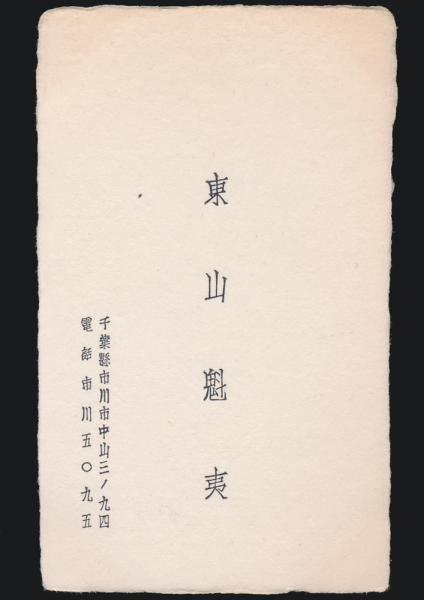 東山魁夷
千葉縣市川市中山二ノ九四
電話市川五〇九五